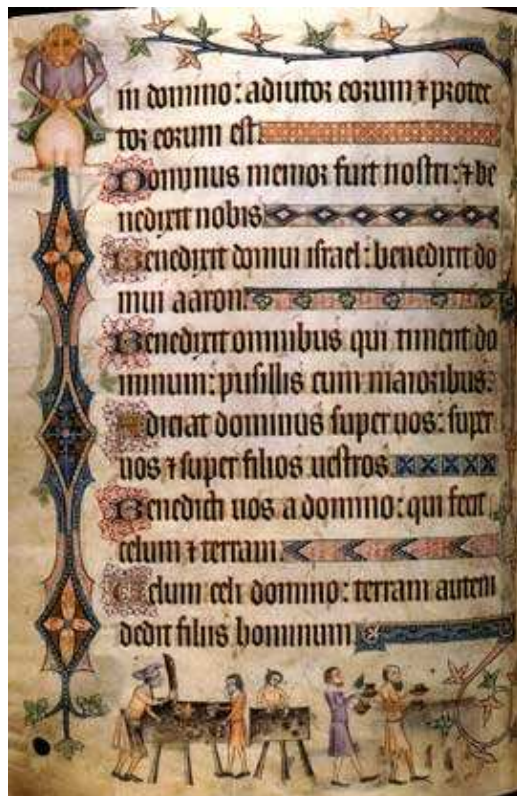 in domino : adiutor eorum ⁊ protec
tor eorum est.
Dominus memor fuit nostri : ⁊ be
nedixit nobis
Benedixit domui israel : benedixit do
mui aaron.
Benedixit omnibus qui timent do
minum : pusillis cum maioribus.
Adiciat dominus super uos : super
uos ⁊ super filios uestros
Benedicti uos a domino : qui fecit
celum ⁊ terram.
Celum celi domino : terram autem
dedit filiis hominum